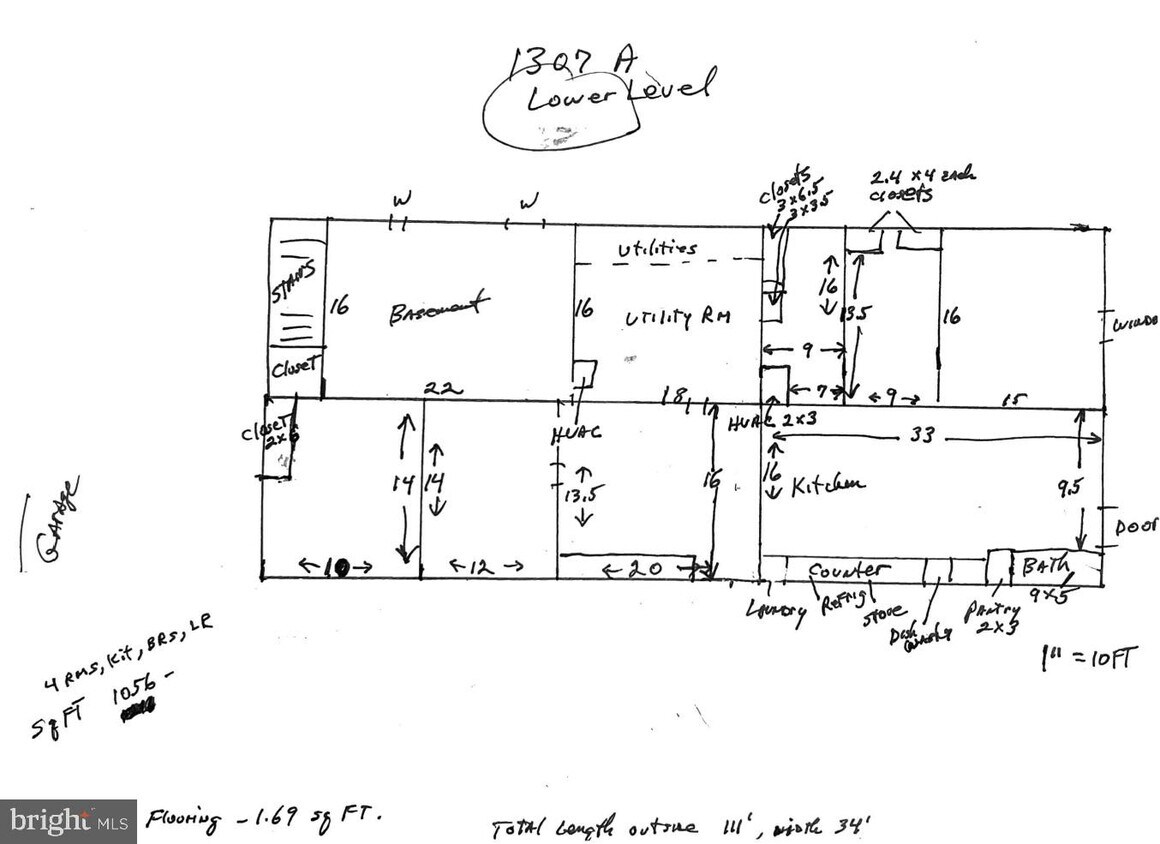 1307 A
Lower Level
W
W
closets
3x6.5
3x3.5
2.4 x4 each
closets
STAIRS
16
Basement
utilities
16
utility RM
16
13.5
16
WINDO
9
closet
22
18
7
9
15
HVAC
HVAC 2x3
33
closet
2x6
14
14
13.5
16
16
Kitchen
9.5
Garage
DOOR
10
12
20
Counter
BATH
9x5
Laundry
Refrig
Stove
Dish
washer
Pantry
2x3
1" = 10FT
4 RMS, Kit, BRS, LR
Sq FT 1056 -
bright MLS
Flooring - 1.69 sq FT.
Total Length outside 111', width 34'